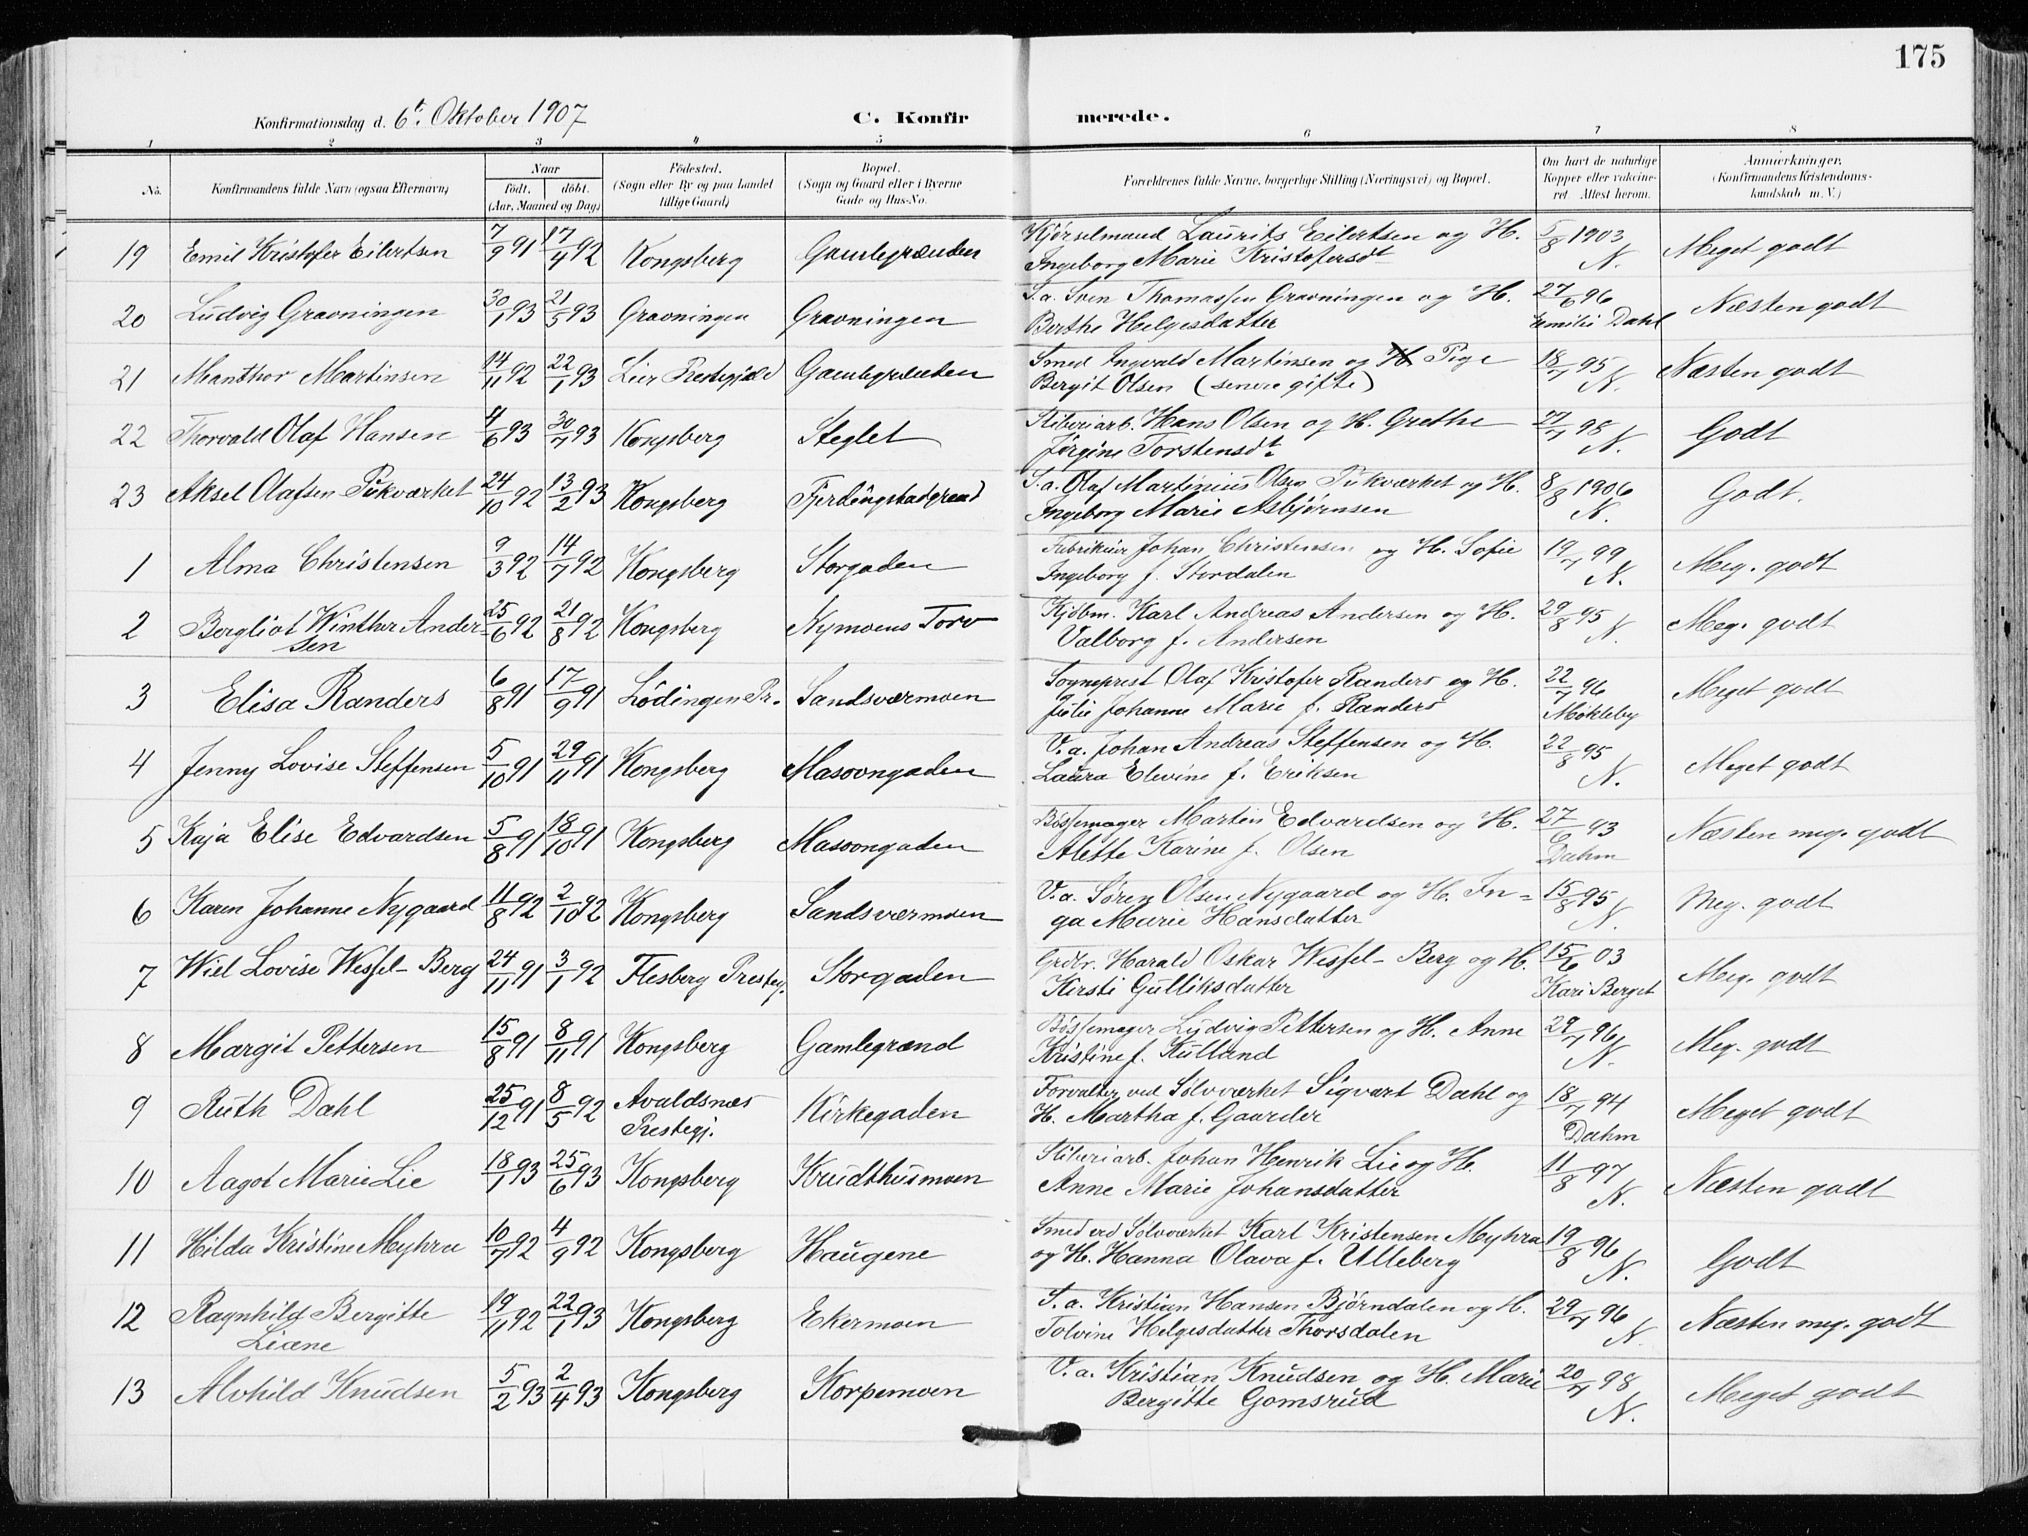 175
Konfirmationsdag d. 6t. Oktober 1907 C. Konfirmerede.
1 2 3 4 5 6 7 8
No. Konfirmandens fulde Navn (ogsaa Efternavn) Naar födt. döbt. (Aar, Maaned og Dag) Födested. (Sogn eller By og paa Landet tillige Gaard) Bopæl. (Sogn og Gaard eller i Byerne Gade og Hus-No. Forældrenes fulde Navne, borgerlige Stilling (Næringsvei) og Bopæl. Om havt de naturlige Kopper eller vakcineret. Attest herom. Anmærkninger. (Konfirmandens Kristendomskundskab m. V.)
19 Emil Kristofer Eilertsen 7/9 91 17/4 92 Kongsberg Gamlegrænden Kjörselmand Laurits Eilertsen og H. 5/8 1903 Meget godt
Ingeborg Marie Kristofersdt N.
20 Ludvig Gravningen 30/1 93 21/5 93 Gravningen Gravningen S.a. Sven Thomassen Gravningen og H. 27/6 96 Næsten godt
Berthe Helgesdatter Emilie Dahl
21 Manthor Martinsen 14/11 92 22/1 93 Lier Prestegjæld Gamlegrænden Smed Ingvald Martinsen og H Pige 18/7 95 Næsten godt
Bergit Olsen (senere gifte) N.
22 Thorvald Olaf Hansen 4/6 93 30/7 93 Kongsberg Steglet Sliberiarb. Hans Olsen og H. Grethe 27/7 98 Godt
Jörgine Torstensdt. N.
23 Aksel Olafsen Pukværket 24/10 92 13/2 93 Kongsberg Fjerdingstadgrænd S.a. Olaf Martinius Olsen Pukværket og H. 8/8 1906 Godt.
Ingeborg Marie Asbjörnsen N.
1 Alma Christensen 9/3 92 14/7 92 Kongsberg Storgaden Fabrikeier Johan Christensen og H. Sofie 19/7 99 Meg. godt
Ingeborg f. Stordalen N.
2 Bergliot Winther Ander- 25/6 92 21/8 92 Kongsberg Nymoens Torv Kjöbm. Karl Andreas Andersen og H. 29/8 95 Meg. godt
sen Valborg f. Andersen N.
3 Elisa Randers 6/8 91 17/9 91 Lödingen Pr. Sandsværmoen Sogneprest Olaf Kristofer Randers og H. 22/7 96 Meget godt
Julie Johanne Marie f. Randers Mökleby
4 Jenny Lovise Steffensen 5/10 91 29/11 91 Kongsberg Masovngaden V.a. Johan Andreas Steffensen og H. 22/8 95 Meget godt
Laura Elevine f. Eriksen N.
5 Kaja Elise Edvardsen 5/8 91 18/10 91 Kongsberg Masovngaden Bössemager Martin Edvardsen og H. 27/6 93 Næsten meg. godt
Alette Karine f. Olsen Dahm
6 Karen Johanne Nygaard 11/8 92 2/10 92 Kongsberg Sandsværmoen V.a. Sören Olsen Nygaard og H. In= 15/8 95 Meg. godt
ga Marie Hansdatter N.
7 Wiel Lovise Wessel-Berg 24/11 91 3/1 92 Flesberg Prestegj. Storgaden Grdbr. Harald Oskar Wessel-Berg og H. 15/6 03 Meg. godt
Kirsti Gulliksdatter Kari Berget
8 Margit Pettersen 15/8 91 8/11 91 Kongsberg Gamlegrænd Bössemager Ludvig Pettersen og H. Anne 29/7 96 Meg. godt
Kristine f. Kulland N.
9 Ruth Dahl 25/12 91 8/5 92 Avaldsnæs Prestegj. Kirkegaden Forvalter ved Sölvværket Sigvart Dahl og 18/7 94 Meget godt
H. Martha f. Gaarder Dahm
10 Aagot Marie Lie 18/1 93 25/6 93 Kongsberg Krudthusmoen Sliberiarb. Johan Henrik Lie og H. 11/8 97 Næsten godt
Anne Marie Johansdatter N.
11 Hilda Kristine Myhra 10/7 92 4/9 92 Kongsberg Haugene Smed ved Sölvværket Karl Kristensen Myhra 19/8 96 Godt
og H. Hanna Olava f. Ulleberg N.
12 Ragnhild Bergitte 19/11 92 22/1 93 Kongsberg Ekermoen S.a. Kristian Hansen Bjørndalen og H. 29/7 96 Næsten meg. godt
Liane Tolvine Helgesdatter Thorsdalen N
13 Alvhild Knudsen 5/2 93 2/4 93 Kongsberg Korpemoen V.a. Kristian Knudsen og H. Marie 20/7 98 Meget godt
Bergitte Gomsrud N.